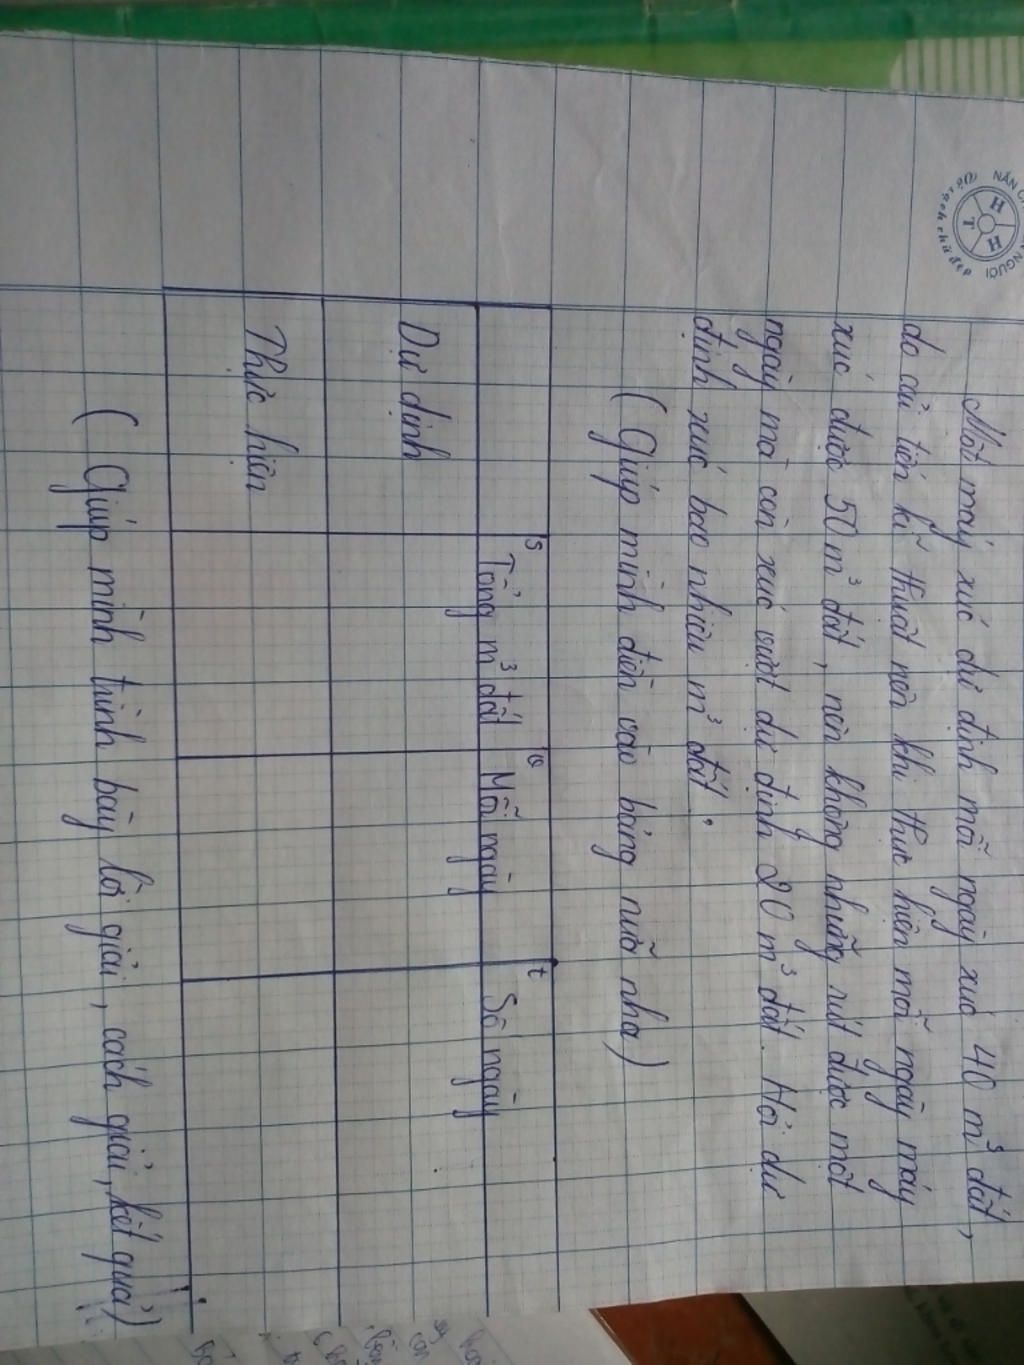 Một máy xúc dự định mỗi ngày xúc 40 m³ đất,
do cải tiến kĩ thuật nên khi thực hiện mỗi ngày máy
xúc được 50 m³ đất, nên không những rút được một
ngày mà còn xúc vượt dự định 20 m³ đất. Hỏi dự
định xúc bao nhiêu m³ đất.
(Giúp mình điền vào bảng nữa nha)
S v t
Tổng m³ đất Mỗi ngày Số ngày
Dự định
Thực hiện
(Giúp mình trình bày lời giải, cách giải, kết quả)
H H T
sạch chữ đẹp
NGƯỜI